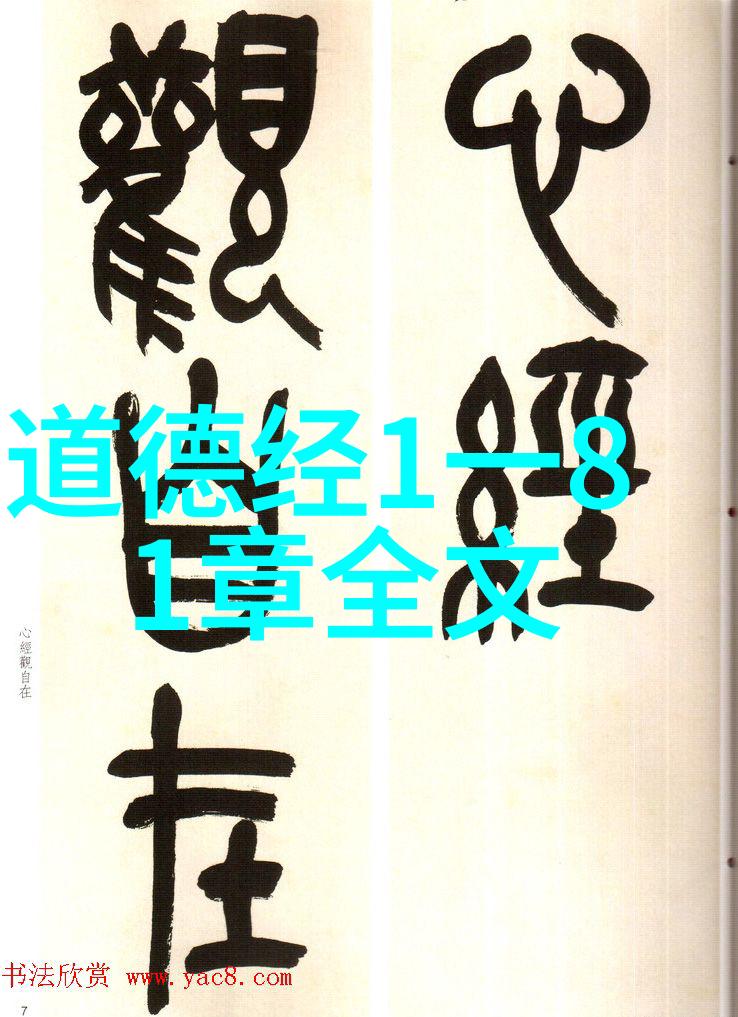 心經
觀自在
道德经1一8
1章全文
心經觀自在
书法欣赏 www.yac8.com
7